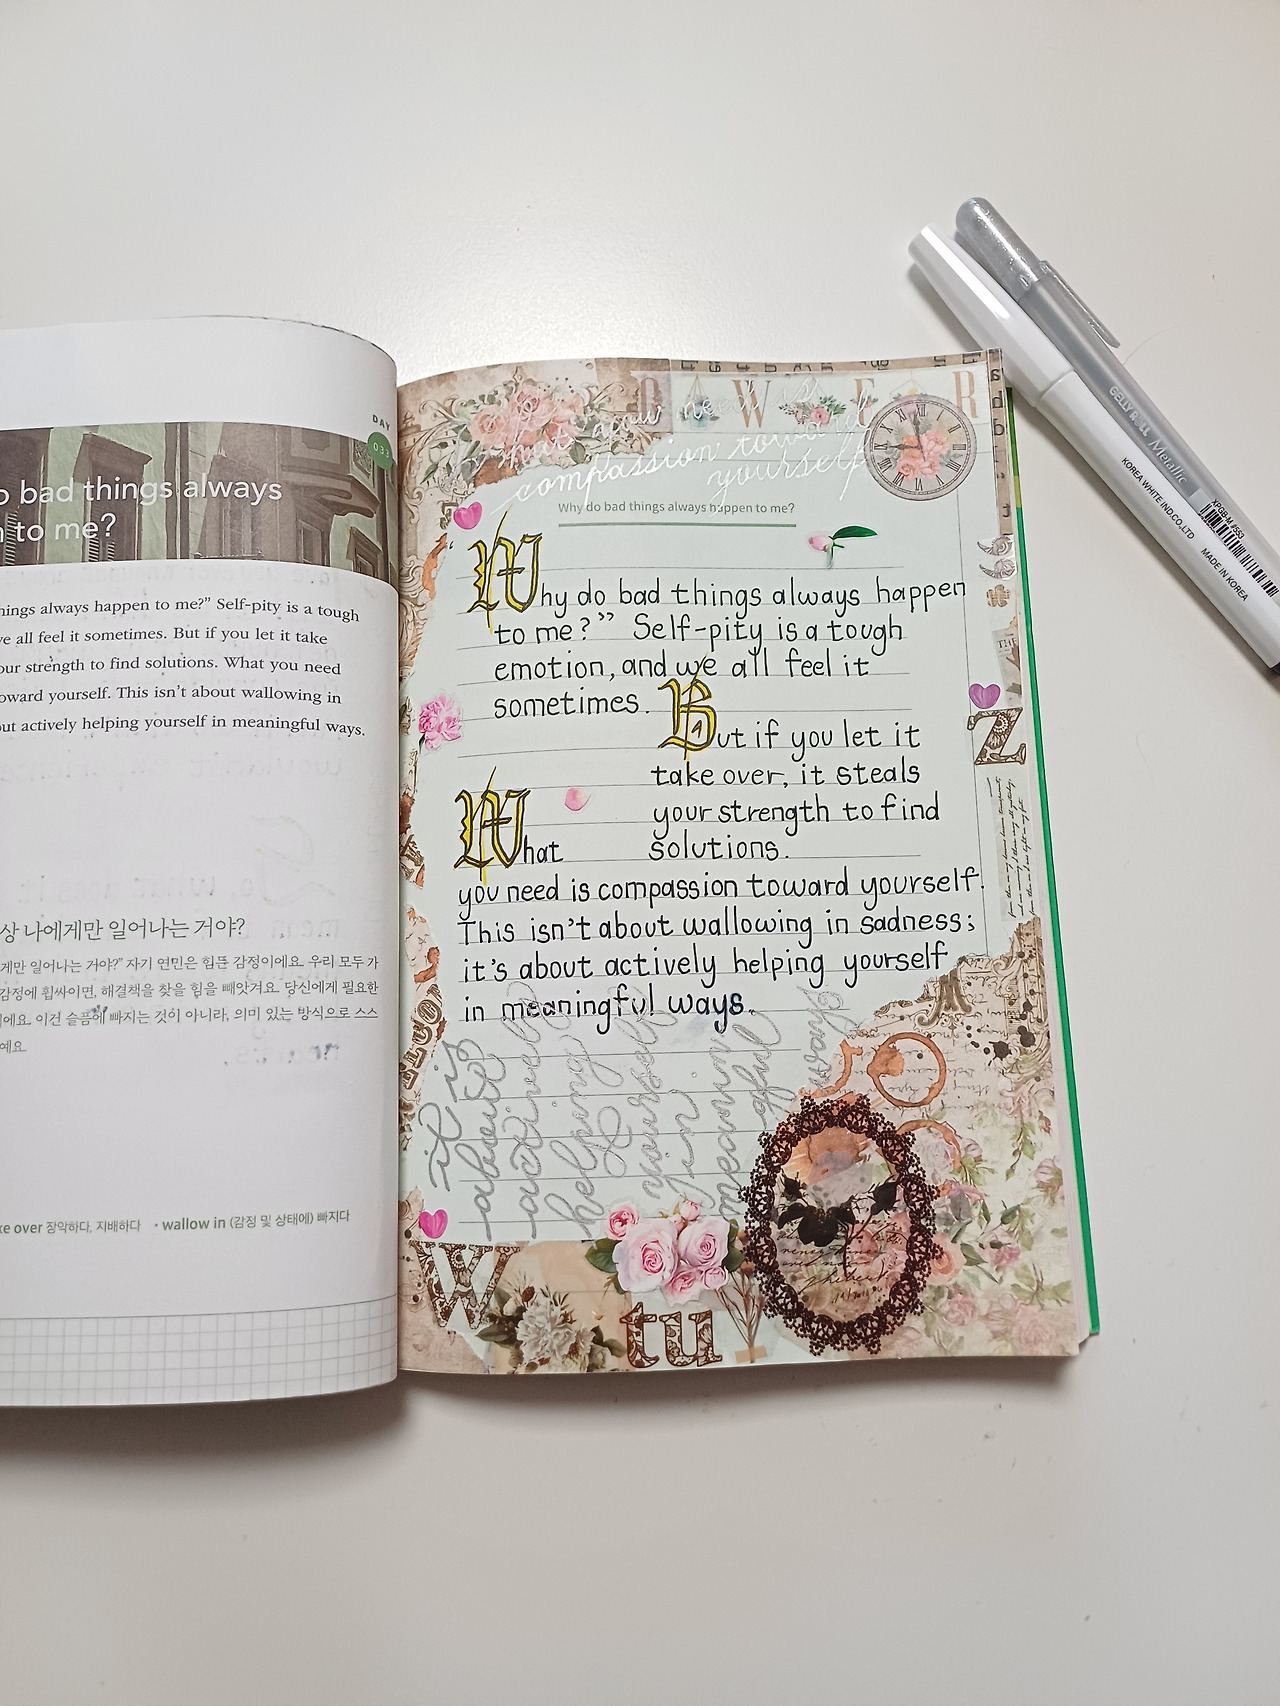 DAY
033
o bad things always
n to me?
hings always happen to me?” Self-pity is a tough
ve all feel it sometimes. But if you let it take
our strength to find solutions. What you need
oward yourself. This isn’t about wallowing in
out actively helping yourself in meaningful ways.
상 나에게만 일어나는 거야?
게만 일어나는 거야?” 자기 연민은 힘든 감정이에요. 우리 모두 가
감정에 휩싸이면, 해결책을 찾을 힘을 빼앗겨요. 당신에게 필요한
이에요. 이건 슬픔에 빠지는 것이 아니라, 의미 있는 방식으로 스스
예요.
ke over 장악하다, 지배하다 • wallow in (감정 및 상태에) 빠지다
O W E R
what you need is
compassion toward
yourself
Why do bad things always happen to me?
Why do bad things always happen
to me?” Self-pity is a tough
emotion, and we all feel it
sometimes.
But if you let it
take over, it steals
your strength to find
solutions.
What
you need is compassion toward yourself.
This isn't about wallowing in sadness;
it's about actively helping yourself
in meaningful ways.
it is
about
actively
helping
yourself
in
meanin
gful
ways
THE
Z
W
tu
GELLY ROLL Metallic
XPGB-M #553
KOREA WHITE IND.CO,.LTD MADE IN KOREA